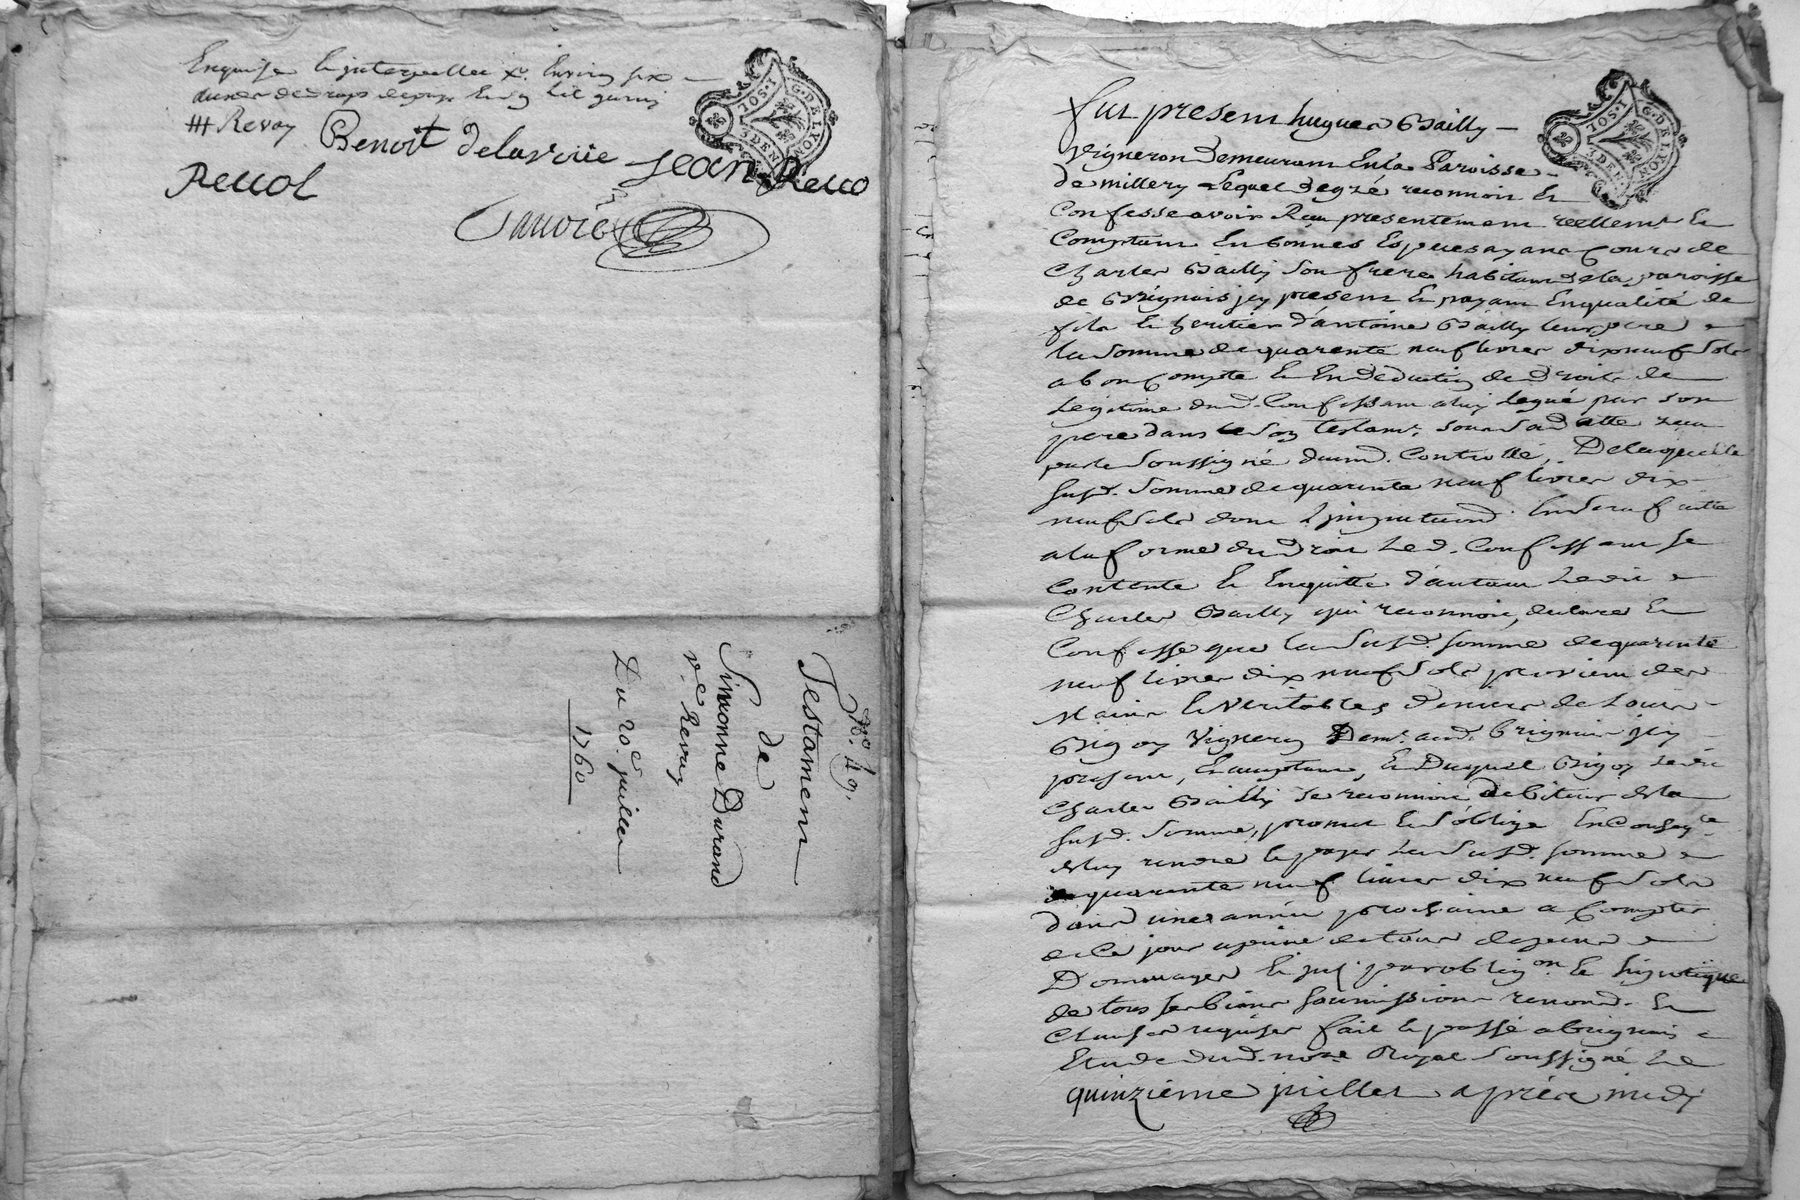 Enquise & interpellee
de draps
Revay Benoit Delavrüe Jean Recco
Recol
1. SOL. 3 DEN. G. DE LYON
No. 49.
Testament
de
Simonne Durand
ve. Revay
Du 20e juillet
1760
1. SOL. 3 DEN. G. DE LYON
Fut present hugues Bailly
Vigneron demeurant en la Paroisse
de millery Lequel de gré reconnoit et
Confesse avoir Reçu presentement reellemt et
Comptant en bonnes Especes ayant Cours de
Charles Bailly son frere habitant de la paroisse
de Brignais jcy present et payant en qualité de
fils et heritier d'antoine Bailly leur pere
la Somme de quarente neuf livres dix neuf sols
a bon Compte et En deduction de droits de
Legitime dud. Confessant a luy Legué par son
pere dans son testamt. sous sa datte reçu
par le soussigné controllé, De laquelle
susd. Somme de quarente neuf livres dix
neuf sols dont
a la forme du droit Led. Confessant se
Contente et En quitte d'autant Ledit
Charles Bailly qui reconnoit, declare et
Confesse que la susd. somme de quarente
neuf livres dix neuf sols provient des
Mains et Veritables deniers de Louis
Bigoy Vigneron Demt. aud. brignais jcy
present, et acceptant, et Duquel Bigoy Ledit
Charles Bailly se reconnoit debiteur de la
susd. Somme, promet et s'oblige En Conseqce
de luy rendre et payer La susd. somme
de quarente neuf livres dix neuf sols
dans une année prochaine a Compter
de ce jour a peine de tous depens
Dommages et par obligon et hipoteque
de tous ses biens soumissions renond. et
Clauses requises fait et passé a brignais
Etude dud. nore Royal Soussigné Le
quinzième juillet après midy